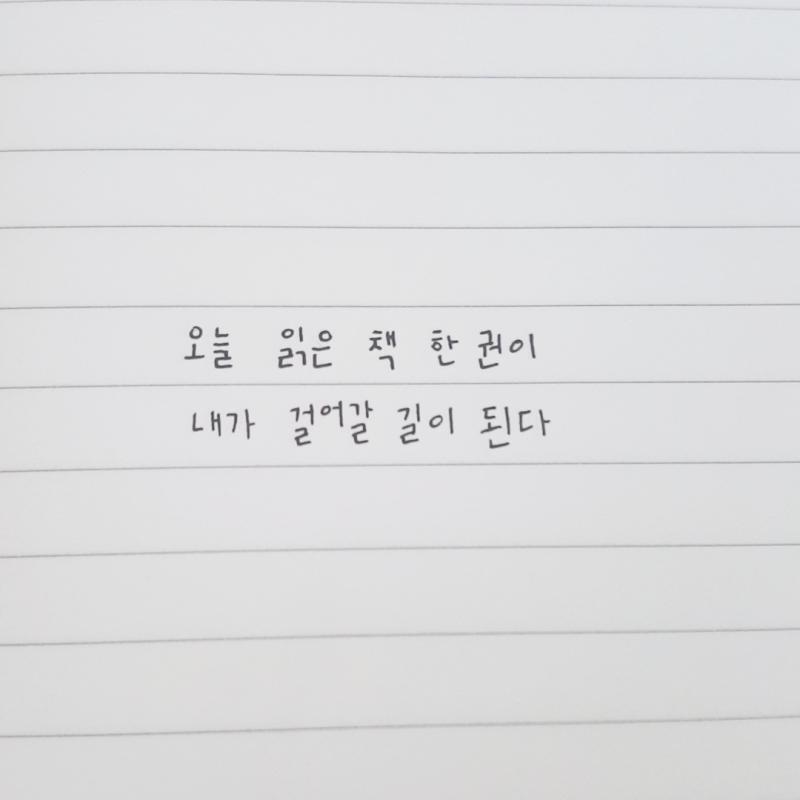 오늘 읽은 책 한 권이
내가 걸어갈 길이 된다